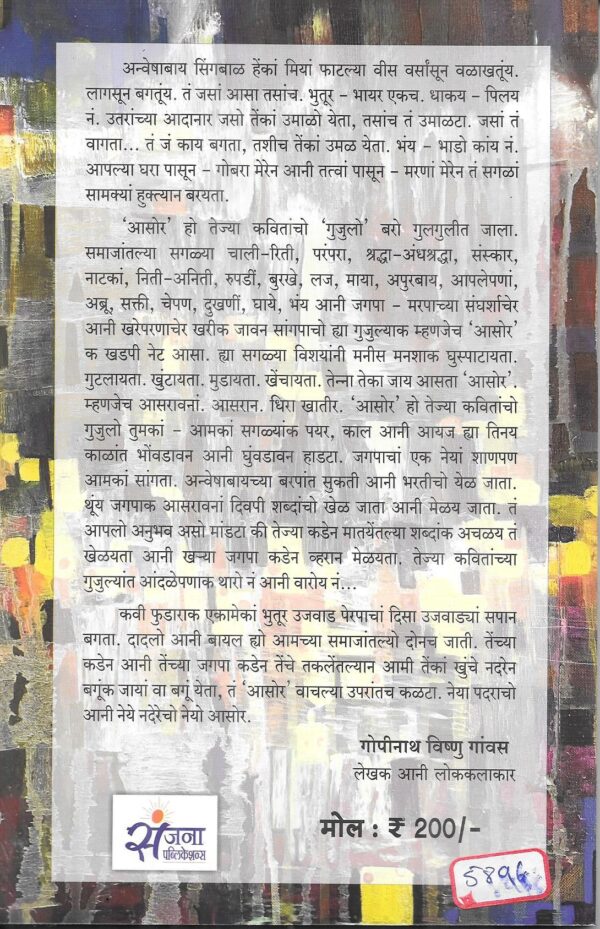 अन्वेषाबाय सिंगबाळ हेंकां मियां फाटल्या वीस वर्सांसून वळाखतूंय.
लागसून बगतूंय. तं जसां आसा तसांच. भुतूर – भायर एकच. धाकय – पिलय
नं. उतरांच्या आदानार जसो तेंकां उमाळो येता, तसांच तं उमाळटा. जसां तं
वागता... तं जं काय बगता, तशीच तेंकां उमळ येता. भंय – भाडो कांय नं.
आपल्या घरा पासून – गोबरा मेरेन आनी तत्वां पासून – मरणां मेरेन तं सगळां
सामक्यां हुक्त्यान बरयता.
‘आसोर’ हो तेज्या कवितांचो ‘गुजुलो’ बरो गुलगुलीत जाला.
समाजांतल्या सगळ्या चाली-रिती, परंपरा, श्रद्धा-अंधश्रद्धा, संस्कार,
नाटकां, निती-अनिती, रुपडीं, बुरखे, लज, माया, अपुरबाय, आपलेपणां,
अब्रू, सक्ती, चेपण, दुखणीं, घाये, भंय आनी जगपा – मरपाच्या संघर्शाचेर
आनी खरेपरणाचेर खरीक जावन सांगपाचो ह्या गुजुल्याक म्हणजेच ‘आसोर’
क खडपी नेट आसा. ह्या सगळ्या विशयांनी मनीस मनशाक घुस्पाटायता.
गुटलायता. खुंटायता. मुडायता. खेंचायता. तेन्ना तेका जाय आसता ‘आसोर’.
म्हणजेच आसरावनां. आसरान. धिरा खातीर. ‘आसोर’ हो तेज्या कवितांचो
गुजुलो तुमकां – आमकां सगळ्यांक पयर, काल आनी आयज ह्या तिनय
काळांत भोंवडावन आनी घुंवडावन हाडटा. जगपाचां एक नेयां शाणपण
आमकां सांगता. अन्वेषाबायच्या बरपांत सुकती आनी भरतीचो येळ जाता.
थूंय जगपाक आसरावनां दिवपी शब्दांचो खेळ जाता आनी मेळय जाता. तं
आपलो अनुभव असो मांडटा की तेज्या कडेन मातयेंतल्या शब्दांक अचळय तं
खेळयता आनी खऱ्या जगपा कडेन व्हरान मेळयता. तेज्या कवितांच्या
गुजुल्यांत आंदळेपणाक थारो नं आनी वारोय नं...
कवी फुडाराक एकामेकां भुतूर उजवाड पेरपाचां दिसा उजवाड्यां सपान
बगता. दादलो आनी बायल ह्यो आमच्या समाजांतल्यो दोनच जाती. तेंच्या
कडेन आनी तेंच्या जगपा कडेन तेंचे तकलेंतल्यान आमी तेंकां खुंचे नदरेन
बगूंक जायां वा बगूं येता, तं ‘आसोर’ वाचल्या उपरांतच कळटा. नेया पदराचो
आनी नेये नदरेचो नेयो आसोर.
गोपीनाथ विष्णु गांवस
लेखक आनी लोककलाकार
संजना
पब्लिकेशन्स
मोल : ₹ 200/-
5896